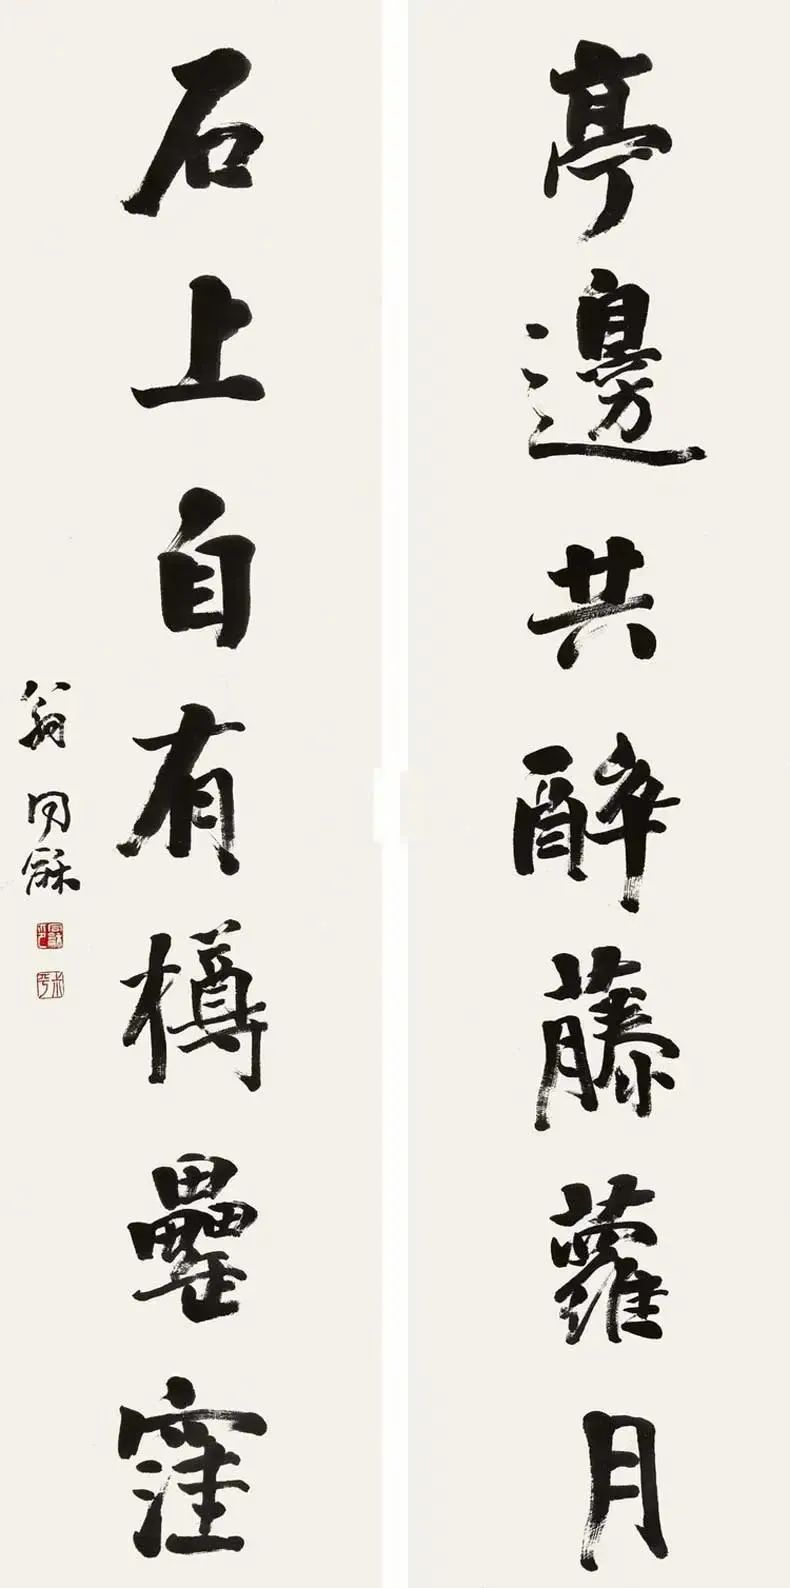 亭邊共醉藤蘿月
石上自有樽罍窪
翁同龢